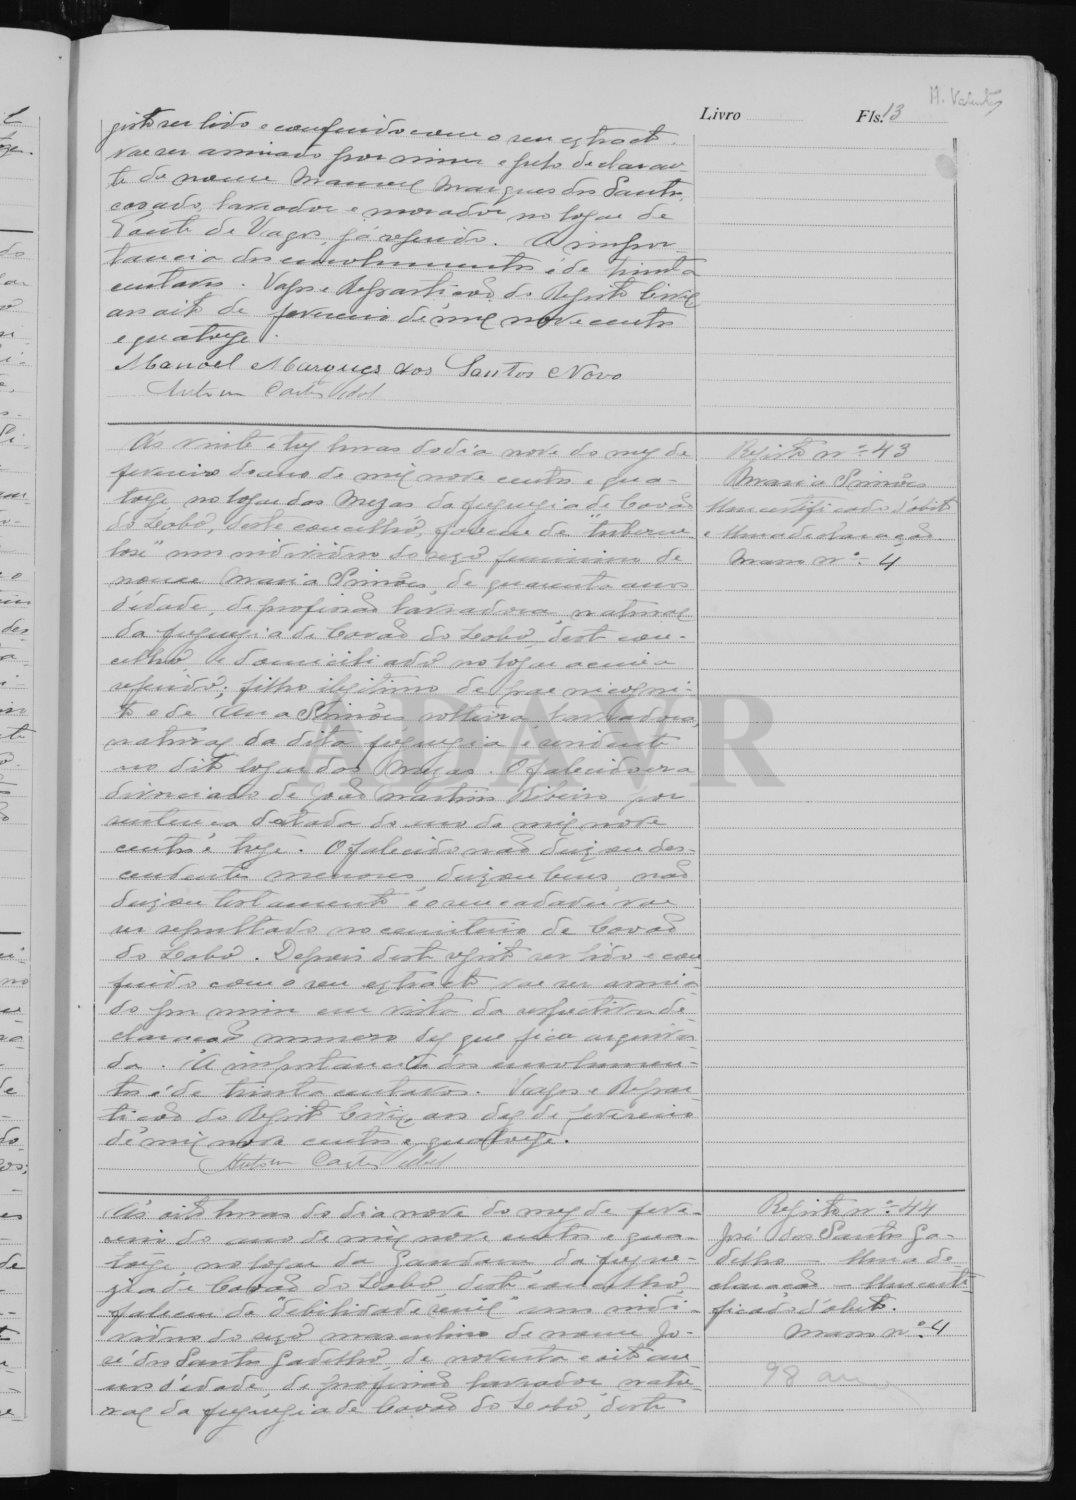 H. Valente
Livro Fls. 13
gisto ser lido e conferido com o seu extracto
vae ser assinado por mim e pelo declaran-
te de nome Manuel Marques dos Santos,
casado, lavrador e morador no logar de
Fonte de Vagos, já referido. A impor-
tancia dos emolumentos é de trinta
centavos. Vagos e Repartição do Registo Civil
aos oito de fevereiro de mil nove centos
e quatorze.
Manoel Marques dos Santos Novo
Ás vinte e tres horas do dia nove do mez de
fevereiro do ano de mil nove centos e qua-
torze no logar das Mezas da freguezia de Covão
do Lobo, deste concelho, faleceu de "tubercu-
lose" um individuo do sexo feminino de
nome Maria Simões, de quarenta anos
d'edade, de profissão lavradora, natural
da freguezia de Covão do Lobo, deste con-
celho, e domiciliado no logar acima
referido; filho ilegitimo de pae incogni-
to e de Ana Simões solteira lavradora
natural da dita freguezia e residente
no dito logar das Mezas. O falecido era
divorciado de João Martins Ribeiro por
sentença datada do ano de mil nove
centos e treze. O falecido não deixou des-
cendentes menores, deixou bens, não
deixou testamento e o seu cadaver vae
ser sepultado no cemiterio de Covão
do Lobo. Depois deste registo ser lido e con-
ferido com o seu extracto vae ser assina-
do por mim em vista da respectiva de-
claração numero dez que fica arquiva-
da. A importancia dos emolumen-
tos é de trinta centavos. Vagos e Repar-
tição do Registo Civil, aos dez de fevereiro
de mil nove centos e quatorze.
Registo nº 43
Maria Simões
Um certificado d'obito
e Uma declaração
Maço nº 4
Ás oito horas do dia nove do mez de feve-
reiro do ano de mil nove centos e qua-
torze, no logar da Gandara da fregue-
zia de Covão do Lobo, deste concelho,
faleceu de "debilidade senil" um indi-
viduo do sexo masculino de nome Jo-
sé dos Santos Gadelho, de noventa e oito an-
nos d'edade, de profissão lavrador, natu-
ral da freguezia de Covão do Lobo, deste
Registo nº 44
José dos Santos Ga-
delho — Uma de-
claração — Um certi-
ficado d'obito.
Maço nº 4
98 anos
ADAVR